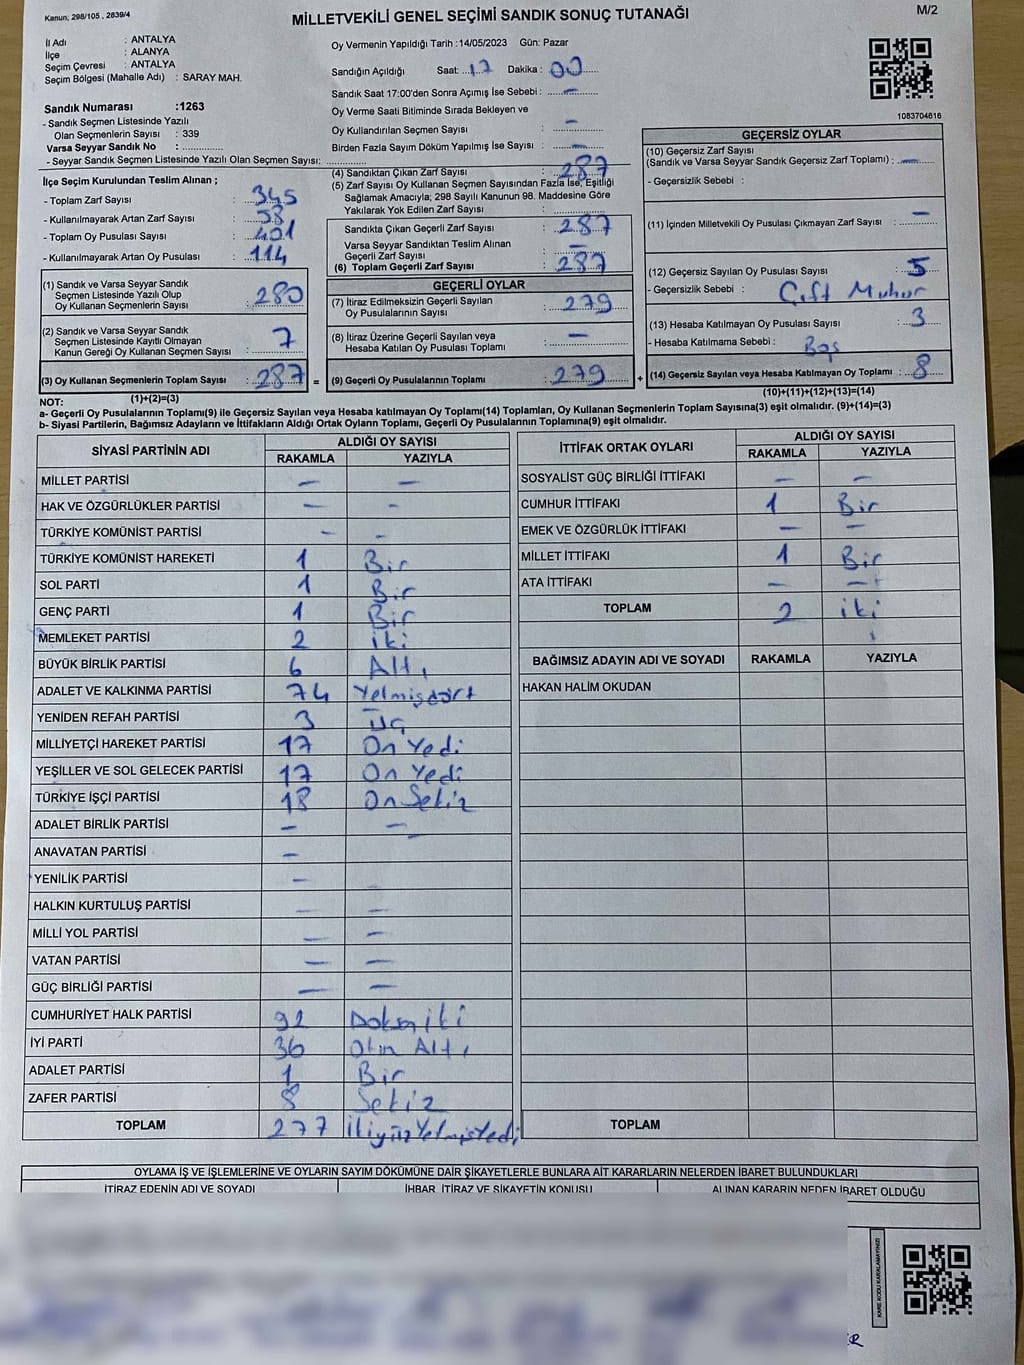 Kanun, 298/105 , 2839/4
MİLLETVEKİLİ GENEL SEÇİMİ SANDIK SONUÇ TUTANAĞI
M/2
İl Adı : ANTALYA
İlçe : ALANYA
Seçim Çevresi : ANTALYA
Seçim Bölgesi (Mahalle Adı) : SARAY MAH.
Sandık Numarası :1263
- Sandık Seçmen Listesinde Yazılı
Olan Seçmenlerin Sayısı : 339
Varsa Seyyar Sandık No :
- Seyyar Sandık Seçmen Listesinde Yazılı Olan Seçmen Sayısı:
İlçe Seçim Kurulundan Teslim Alınan ;
- Toplam Zarf Sayısı : 345
- Kullanılmayarak Artan Zarf Sayısı : 58
- Toplam Oy Pusulası Sayısı : 401
- Kullanılmayarak Artan Oy Pusulası : 114
(1) Sandık ve Varsa Seyyar Sandık
Seçmen Listesinde Yazılı Olup
Oy Kullanan Seçmenlerin Sayısı : 280
(2) Sandık ve Varsa Seyyar Sandık
Seçmen Listesinde Kayıtlı Olmayan
Kanun Gereği Oy Kullanan Seçmen Sayısı : 7
(3) Oy Kullanan Seçmenlerin Toplam Sayısı : 287 =
(1)+(2)=(3)
Oy Vermenin Yapıldığı Tarih :14/05/2023 Gün: Pazar
Sandığın Açıldığı Saat: 17 Dakika : 00
Sandık Saat 17:00'den Sonra Açımış İse Sebebi : –
Oy Verme Saati Bitiminde Sırada Bekleyen ve
Oy Kullandırılan Seçmen Sayısı : –
Birden Fazla Sayım Döküm Yapılmış İse Sayısı : –
(4) Sandıktan Çıkan Zarf Sayısı : 287
(5) Zarf Sayısı Oy Kullanan Seçmen Sayısından Fazla İse, Eşitliği
Sağlamak Amacıyla; 298 Sayılı Kanunun 98. Maddesine Göre
Yakılarak Yok Edilen Zarf Sayısı :
Sandıkta Çıkan Geçerli Zarf Sayısı : 287
Varsa Seyyar Sandıktan Teslim Alınan
Geçerli Zarf Sayısı : –
(6) Toplam Geçerli Zarf Sayısı : 287
GEÇERLİ OYLAR
(7) İtiraz Edilmeksizin Geçerli Sayılan
Oy Pusulalarının Sayısı : 279
(8) İtiraz Üzerine Geçerli Sayılan veya
Hesaba Katılan Oy Pusulası Toplamı : –
(9) Geçerli Oy Pusulalarının Toplamı : 279 +
1083704616
GEÇERSİZ OYLAR
(10) Geçersiz Zarf Sayısı
(Sandık ve Varsa Seyyar Sandık Geçersiz Zarf Toplamı) : –
- Geçersizlik Sebebi :
(11) İçinden Milletvekili Oy Pusulası Çıkmayan Zarf Sayısı : –
(12) Geçersiz Sayılan Oy Pusulası Sayısı : 5
- Geçersizlik Sebebi : Çift Muhur
(13) Hesaba Katılmayan Oy Pusulası Sayısı : 3
- Hesaba Katılmama Sebebi : Boş
(14) Geçersiz Sayılan veya Hesaba Katılmayan Oy Toplamı : 8
(10)+(11)+(12)+(13)=(14)
NOT:
a- Geçerli Oy Pusulalarının Toplamı(9) ile Geçersiz Sayılan veya Hesaba katılmayan Oy Toplamı(14) Toplamları, Oy Kullanan Seçmenlerin Toplam Sayısına(3) eşit olmalıdır. (9)+(14)=(3)
b- Siyasi Partilerin, Bağımsız Adayların ve İttifakların Aldığı Ortak Oyların Toplamı, Geçerli Oy Pusulalarının Toplamına(9) eşit olmalıdır.
SİYASİ PARTİNİN ADI ALDIĞI OY SAYISI
RAKAMLA YAZIYLA
MİLLET PARTİSİ – –
HAK VE ÖZGÜRLÜKLER PARTİSİ – –
TÜRKİYE KOMÜNİST PARTİSİ – –
TÜRKİYE KOMÜNİST HAREKETİ 1 Bir
SOL PARTİ 1 Bir
GENÇ PARTİ 1 Bir
MEMLEKET PARTİSİ 2 iki
BÜYÜK BİRLİK PARTİSİ 6 Altı
ADALET VE KALKINMA PARTİSİ 74 Yetmişdört
YENİDEN REFAH PARTİSİ 3 üç
MİLLİYETÇİ HAREKET PARTİSİ 17 On Yedi
YEŞİLLER VE SOL GELECEK PARTİSİ 17 On Yedi
TÜRKİYE İŞÇİ PARTİSİ 18 On Sekiz
ADALET BİRLİK PARTİSİ – –
ANAVATAN PARTİSİ –
YENİLİK PARTİSİ –
HALKIN KURTULUŞ PARTİSİ – –
MİLLİ YOL PARTİSİ – –
VATAN PARTİSİ – –
GÜÇ BİRLİĞİ PARTİSİ – –
CUMHURİYET HALK PARTİSİ 92 Doksaniki
İYİ PARTİ 36 Otuz Altı
ADALET PARTİSİ 1 Bir
ZAFER PARTİSİ 8 Sekiz
TOPLAM 277 ikiyüzYetmişYedi
İTTİFAK ORTAK OYLARI ALDIĞI OY SAYISI
RAKAMLA YAZIYLA
SOSYALİST GÜÇ BİRLİĞİ İTTİFAKI – –
CUMHUR İTTİFAKI 1 Bir
EMEK VE ÖZGÜRLÜK İTTİFAKI – –
MİLLET İTTİFAKI 1 Bir
ATA İTTİFAKI – –
TOPLAM 2 iki
BAĞIMSIZ ADAYIN ADI VE SOYADI RAKAMLA YAZIYLA
HAKAN HALİM OKUDAN
TOPLAM
OYLAMA İŞ VE İŞLEMLERİNE VE OYLARIN SAYIM DÖKÜMÜNE DAİR ŞİKAYETLERLE BUNLARA AİT KARARLARIN NELERDEN İBARET BULUNDUKLARI
İTİRAZ EDENİN ADI VE SOYADI İHBAR, İTİRAZ VE ŞİKAYETİN KONUSU ALINAN KARARIN NEDEN İBARET OLDUĞU
KARE KODU KARALAMAYINIZ!